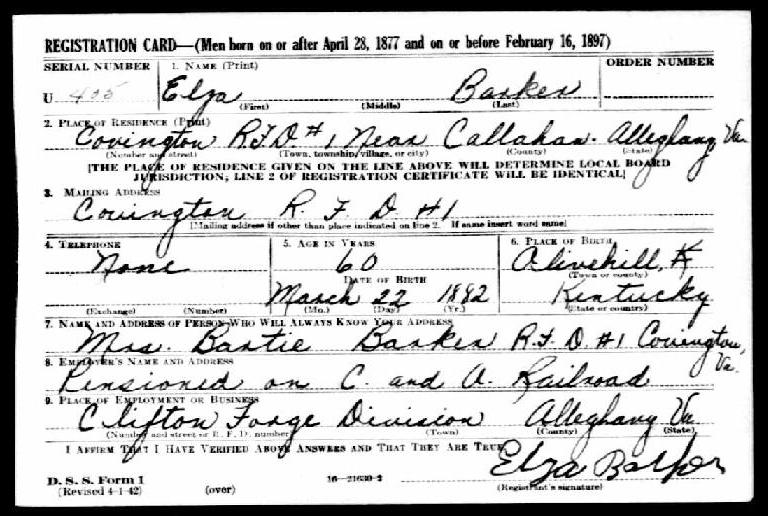 REGISTRATION CARD—(Men born on or after April 28, 1877 and on or before February 16, 1897)
SERIAL NUMBER 1. NAME (Print) ORDER NUMBER
U 405 Elza Barker
(First) (Middle) (Last)
2. PLACE OF RESIDENCE (Print)
Covington R.F.D. #1 Near Callahan. Alleghany Va.
(Number and street) (Town, township, village, or city) (County) (State)
[THE PLACE OF RESIDENCE GIVEN ON THE LINE ABOVE WILL DETERMINE LOCAL BOARD
JURISDICTION; LINE 2 OF REGISTRATION CERTIFICATE WILL BE IDENTICAL]
3. MAILING ADDRESS
Covington R. F. D. #1
[Mailing address if other than place indicated on line 2. If same insert word same]
4. TELEPHONE 5. AGE IN YEARS 6. PLACE OF BIRTH
None 60 Olivehill, K
(Town or county)
DATE OF BIRTH
March 22 1882 Kentucky
(Exchange) (Number) (Mo.) (Day) (Yr.) (State or country)
7. NAME AND ADDRESS OF PERSON WHO WILL ALWAYS KNOW YOUR ADDRESS
Mrs. Bartie Barker R.F.D. #1 Covington, Va.
8. EMPLOYER'S NAME AND ADDRESS
Pensioned on C. and O. Railroad
9. PLACE OF EMPLOYMENT OR BUSINESS
Clifton Forge Division Alleghany Va
(Number and street or R. F. D. number) (Town) (County) (State)
I AFFIRM THAT I HAVE VERIFIED ABOVE ANSWERS AND THAT THEY ARE TRUE.
Elza Barker
D. S. S. Form 1 16—21630-2 (Registrant's signature)
(Revised 4-1-42) (over)